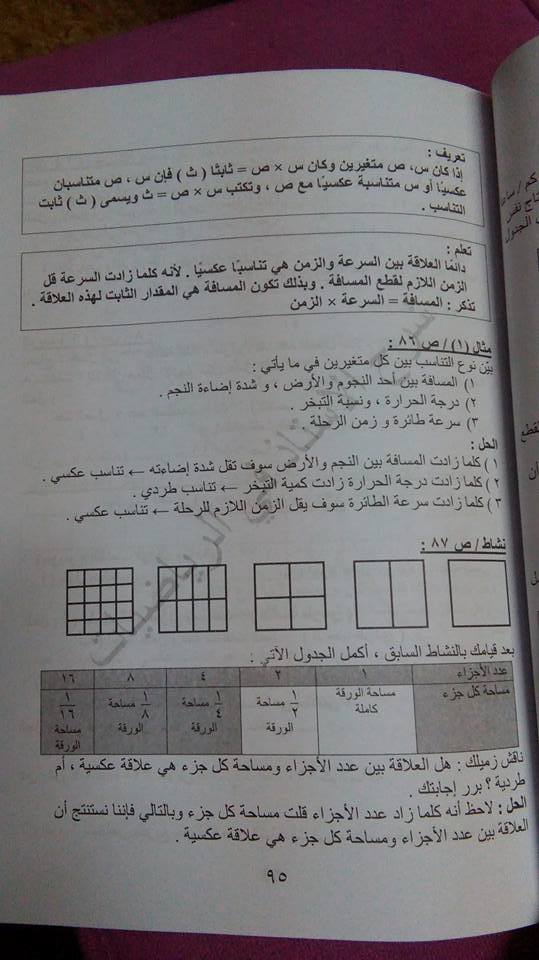 تعريف :
إذا كان س، ص متغيرين وكان س × ص = ثابتًا ( ث ) فإن س ، ص متناسبان
عكسيًا أو س متناسبة عكسيًا مع ص ، وتكتب س × ص = ث ويسمى ( ث ) ثابت
التناسب .
تعلم :
دائمًا العلاقة بين السرعة والزمن هي تناسبًا عكسيًا . لأنه كلما زادت السرعة قل
الزمن اللازم لقطع المسافة . وبذلك تكون المسافة هي المقدار الثابت لهذه العلاقة .
تذكر : المسافة = السرعة × الزمن
مثال (١) / ص ٨٦ :
بيّن نوع التناسب بين كل متغيرين في ما يأتي :
١) المسافة بين أحد النجوم والأرض ، و شدة إضاءة النجم .
٢) درجة الحرارة ، ونسبة التبخر .
٣) سرعة طائرة و زمن الرحلة .
الحل :
١) كلما زادت المسافة بين النجم والأرض سوف تقل شدة إضاءته ← تناسب عكسي .
٢) كلما زادت درجة الحرارة زادت كمية التبخر ← تناسب طردي .
٣) كلما زادت سرعة الطائرة سوف يقل الزمن اللازم للرحلة ← تناسب عكسي .
نشاط / ص ٨٧ :
بعد قيامك بالنشاط السابق ، أكمل الجدول الآتي :
عدد الأجزاء ١ ٢ ٤ ٨ ١٦
مساحة كل جزء مساحة الورقة كاملة ١/٢ مساحة الورقة ١/٤ مساحة الورقة ١/٨ مساحة الورقة ١/١٦ مساحة الورقة
ناقش زميلك : هل العلاقة بين عدد الأجزاء ومساحة كل جزء هي علاقة عكسية ، أم
طردية ؟ برر إجابتك .
الحل : لاحظ أنه كلما زاد عدد الأجزاء قلت مساحة كل جزء وبالتالي فإننا نستنتج أن
العلاقة بين عدد الأجزاء ومساحة كل جزء هي علاقة عكسية .
٩٥